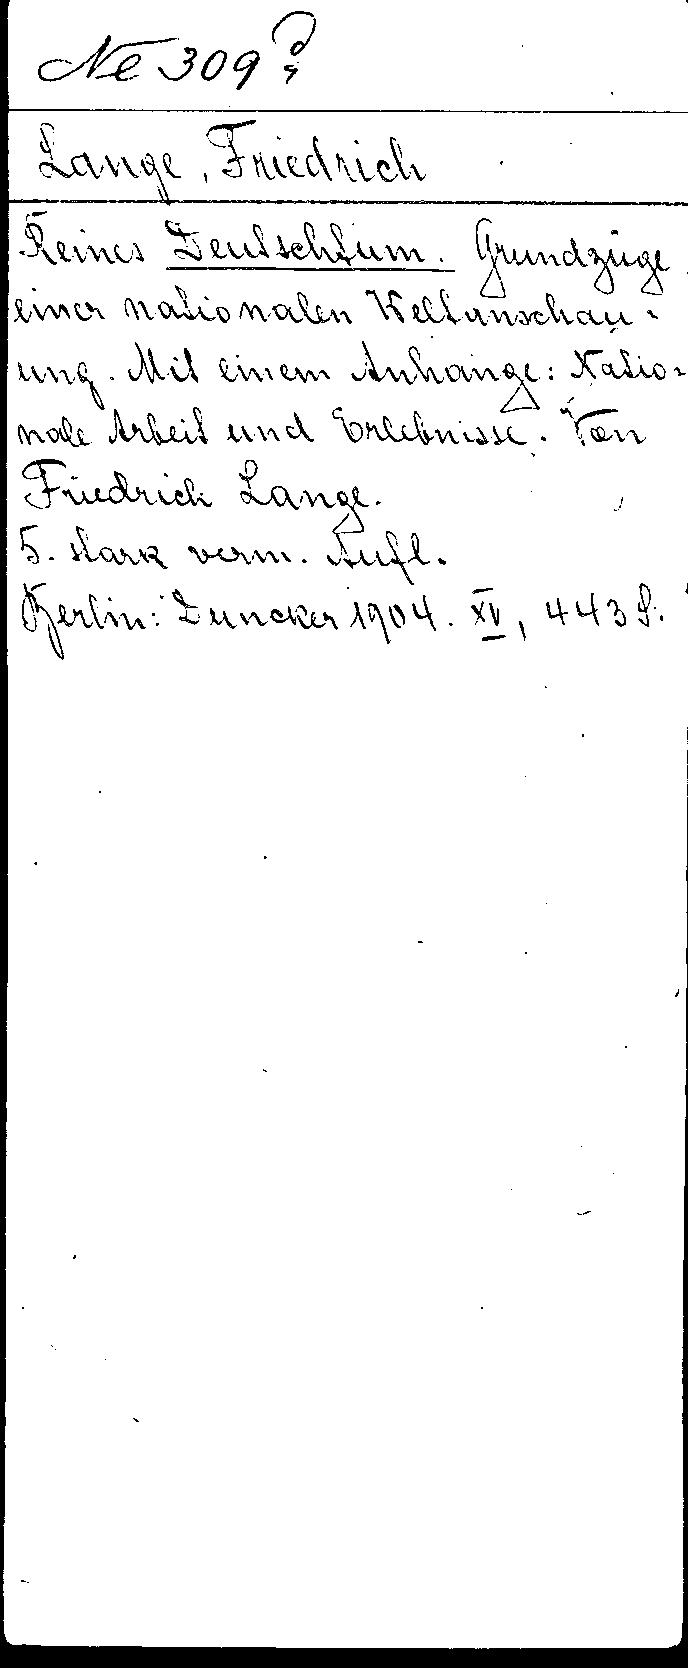 Ne 309?
Lange, Friedrich
Reines Deutschtum. Grundzüge
einer nationalen Weltanschau-
ung. Mit einem Anhange: Natio-
nale Arbeit und Erlebnisse. Von
Friedrich Lange.
5. stark verm. Aufl.
Berlin: Duncker 1904. XV, 443 S.